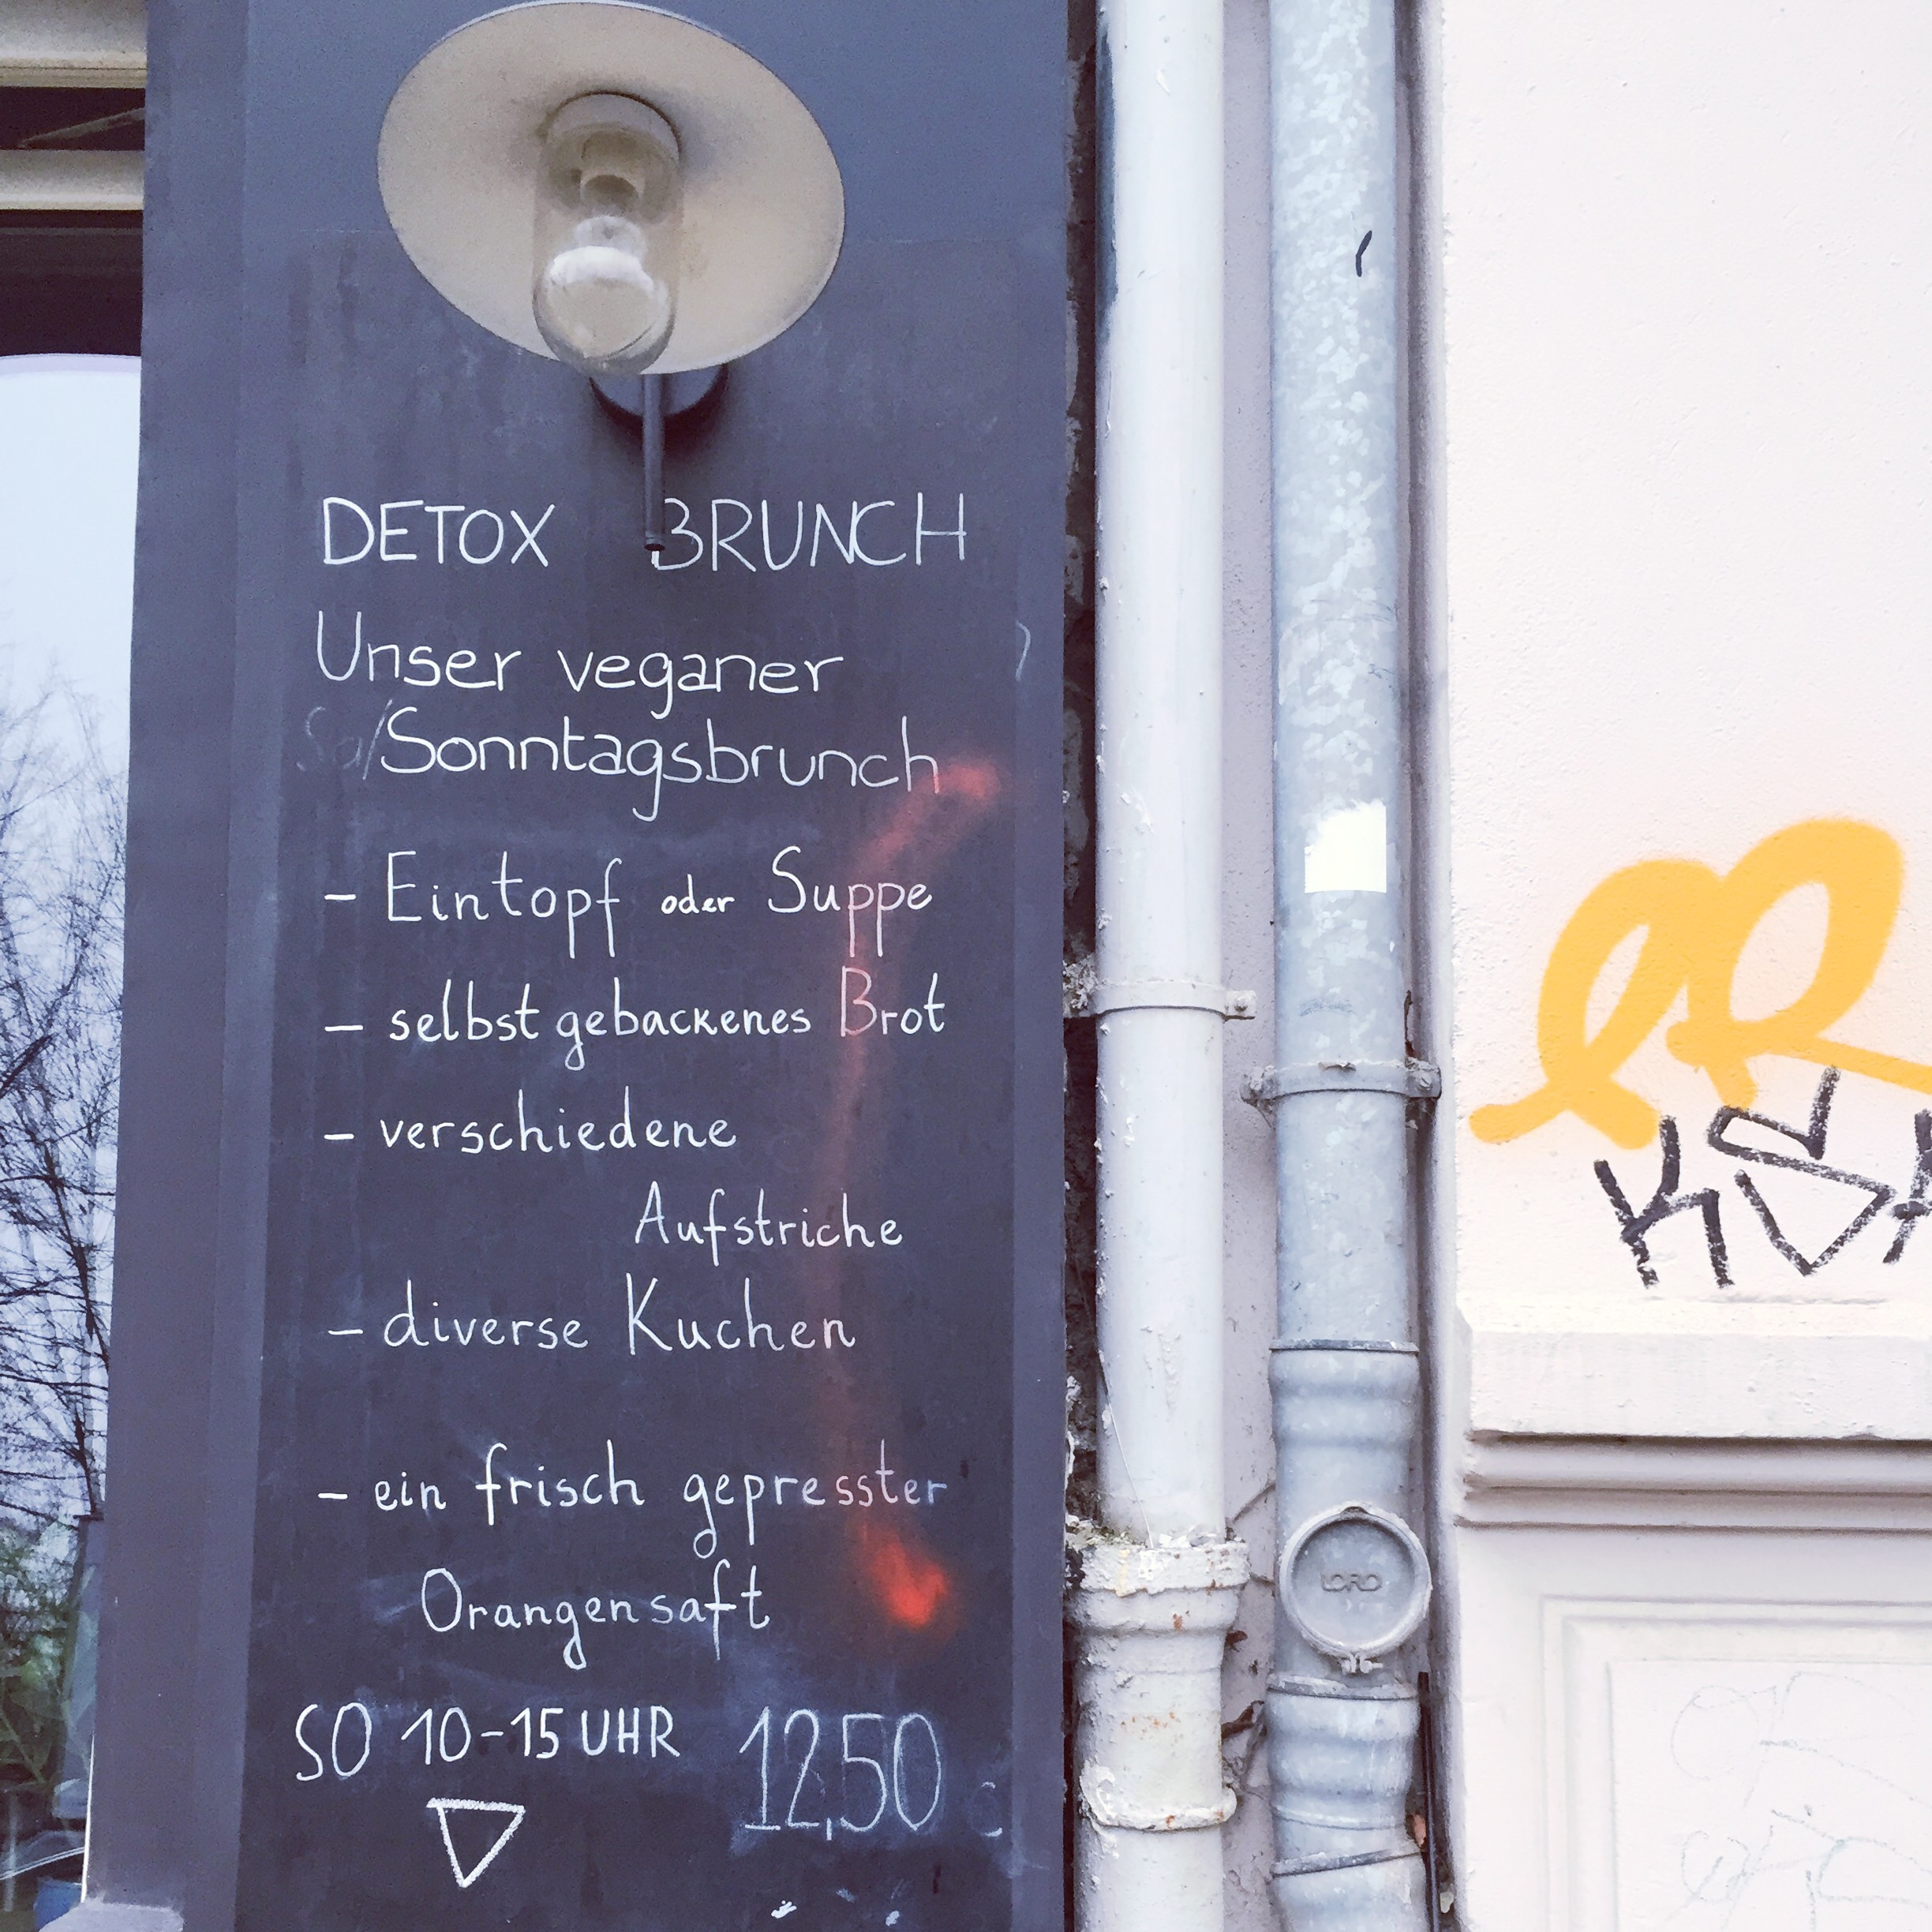 DETOX BRUNCH
Unser veganer
Sa/Sonntagsbrunch
- Eintopf oder Suppe
- selbstgebackenes Brot
- verschiedene
Aufstriche
- diverse Kuchen
- ein frisch gepresster
Orangensaft
SO 10-15 UHR
12,50 €
LORO